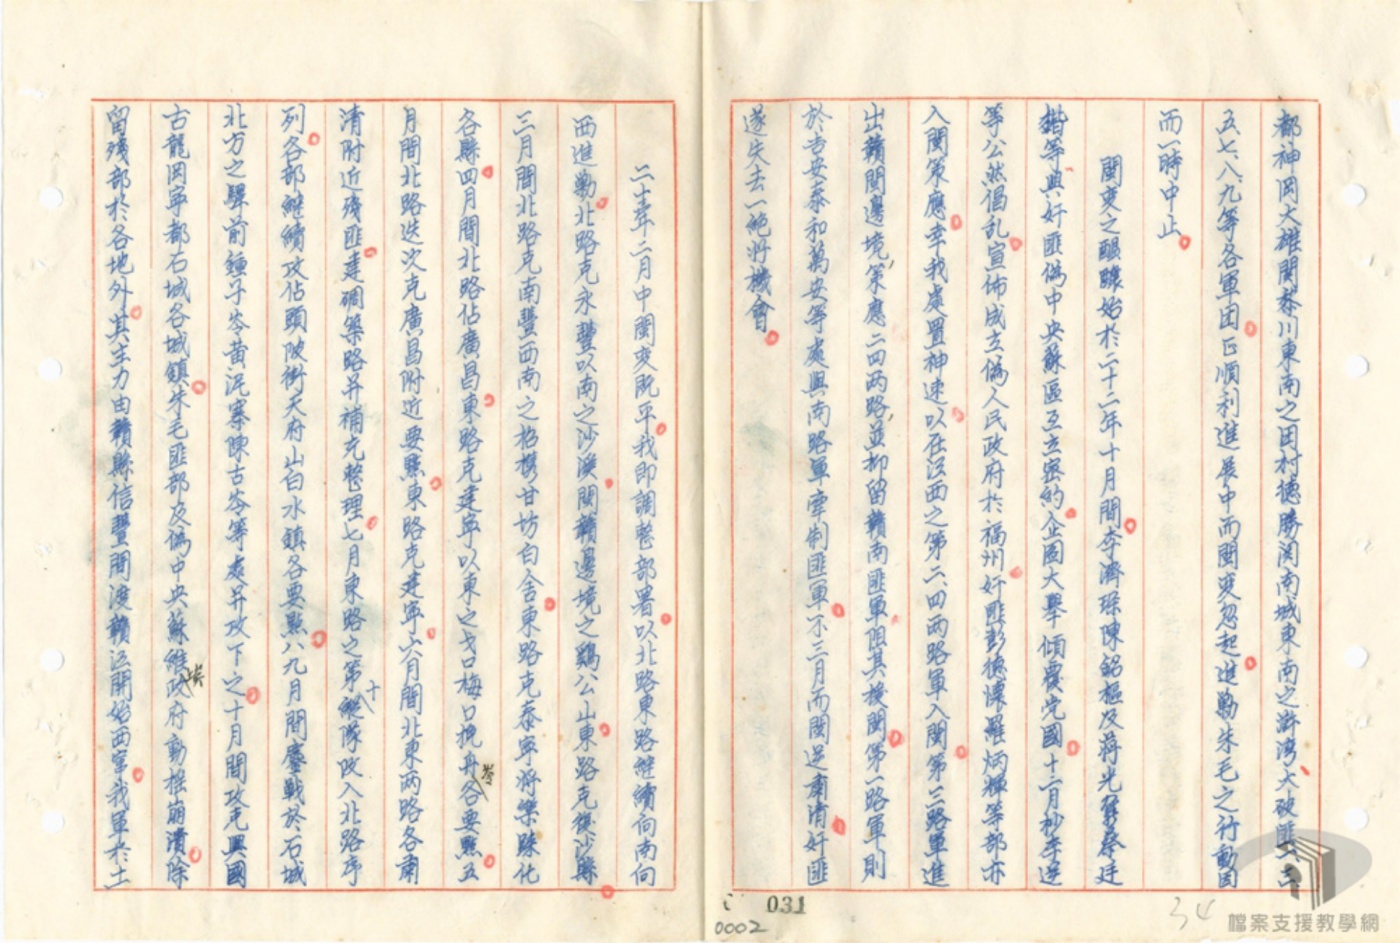 都神岡大雄關泰川東南之因村德勝関南城東南之滸灣大破匪共三
五七八九等各軍团正順利進展中而閩变忽起進勦朱毛之行動因
而一時中止
閩变之醖釀始於二十二年十月間李濟琛陳銘樞及蔣光鼐蔡廷
鍇等與奸匪偽中央蘇區互立密約企圖大舉傾覆党國十一月杪李逆
等公然倡乱宣佈成立偽人民政府於福州奸匪彭德懷羅炳輝等部亦
入閩策應幸我處置神速以在江西之第二四两路軍入閩第三路軍進
出贛閩邊境策應二四两路並抑留贛南匪軍阻其援閩第一路軍則
於吉安泰和萬安等處與南路軍牽制匪軍不三月而閩逆肅清奸匪
遂失去一絶好機會
二十三年二月中閩变既平我即調整部署以北路東路继續向南向
西進勦北路克永豐以南之沙溪閩贛邊境之鷄公山東路克復沙縣
三月間北路克南豐西南之招携甘坊白舍東路克泰寧將樂歸化
各縣四月間北路佔廣昌東路克建寧以東之弋口梅口挽舟岺各要點五
月間北路迭次克廣昌附近要點東路克建寧六月間北東两路各肅
清附近残匪建碉築路并補充整理七月東路之第十縱隊改入北路序
列各部继續攻佔頭陂衙天府山白水鎮各要點八九月間鏖戰於石城
北方之驛前鍾子岺黄泥寨陳古岺等處并攻下之十月間攻克興國
古龍岡寧都石城各城鎮朱毛匪部及偽中央蘇維埃政府動摇崩潰除
留残部於各地外其主力由贛縣信豐間渡贛江開始西窜我軍於土
031
0002
34
檔案支援教學網